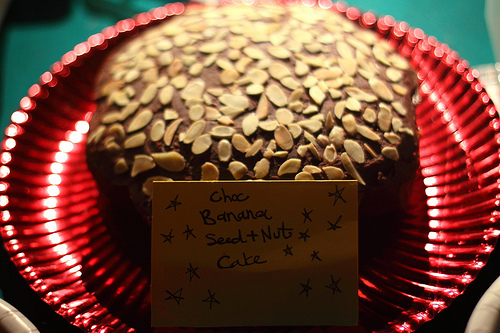 Choc
Banana
Seed + Nuts
Cake